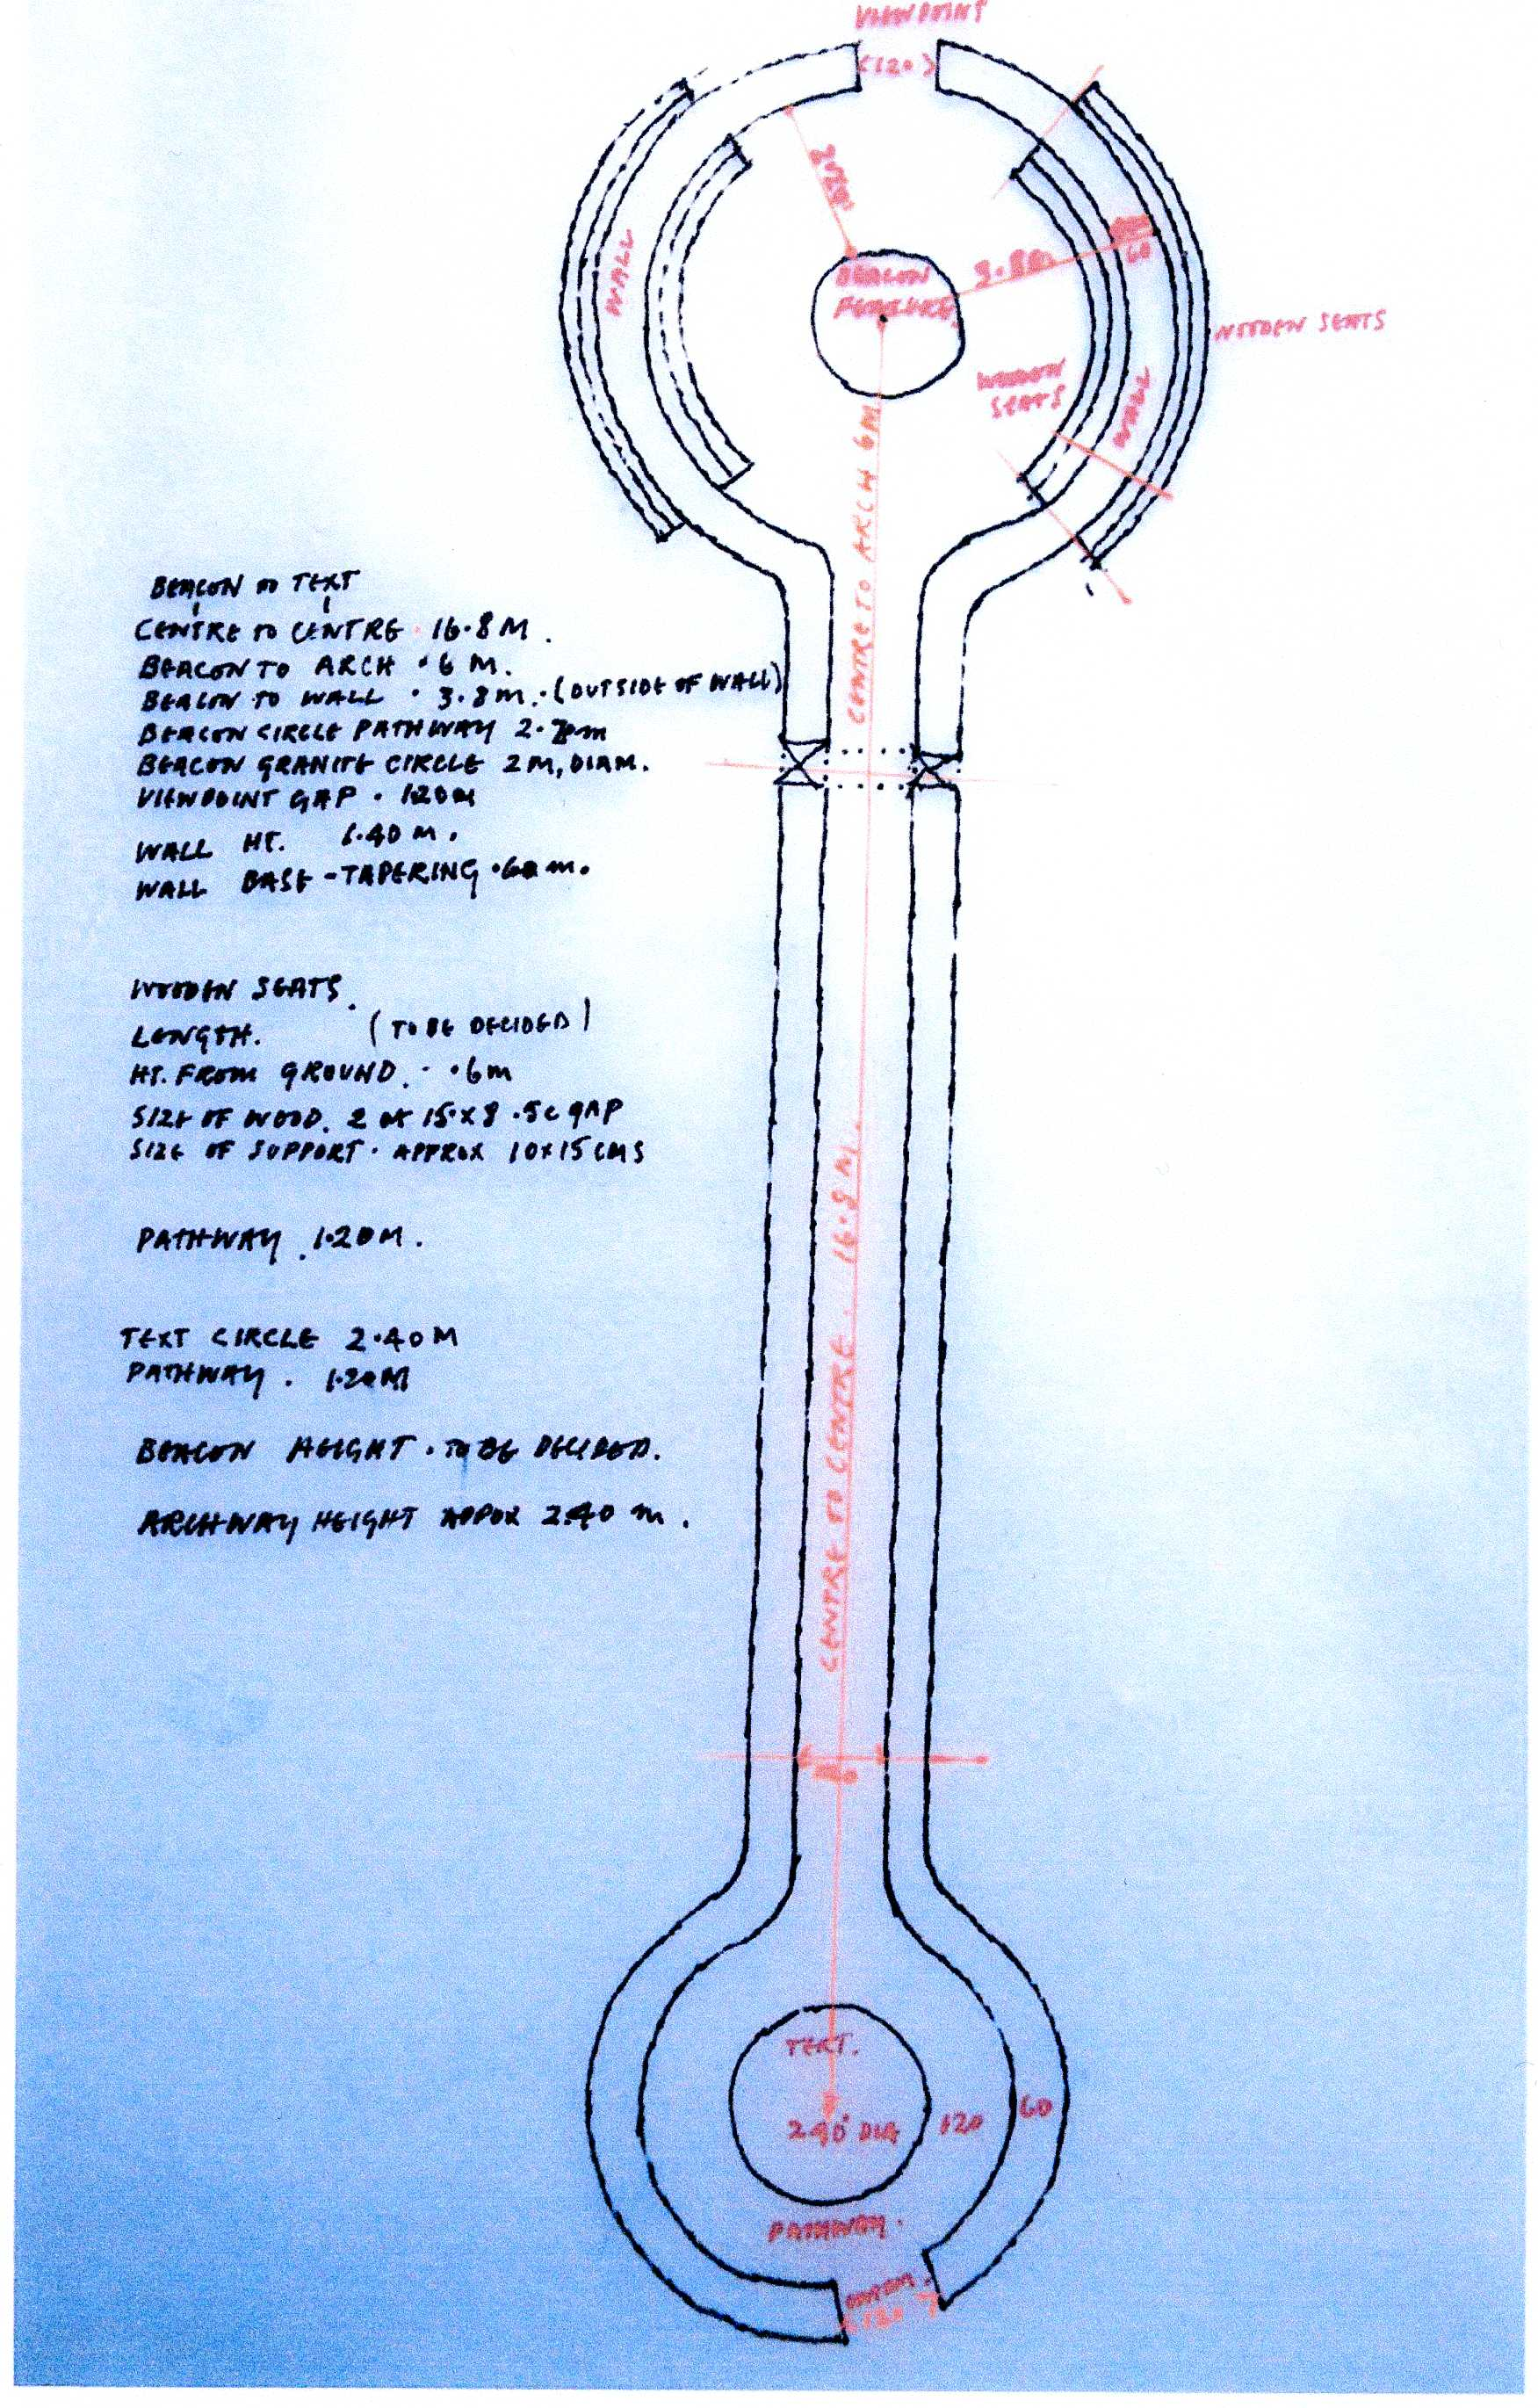 VIEWPOINT
(120)
WALL
BEACON
3.80
60
WOODEN SEATS
WOODEN
SEATS
WALL
CENTRE TO ARCH 6M
BEACON TO TEXT
CENTRE TO CENTRE 16.8M.
BEACON TO ARCH .6M.
BEACON TO WALL . 3.8m.(OUTSIDE OF WALL)
BEACON CIRCLE PATHWAY
BEACON GRANITE CIRCLE 2M, DIAM.
VIEWPOINT GAP . 120m
WALL HT. 1.40 m.
WALL BASE - TAPERING .60 m.
WOODEN SEATS.
LENGTH. (TO BE DECIDED)
HT. FROM GROUND. - .6m
SIZE OF WOOD. 2 OF 15 x 8 .5c GAP
SIZE OF SUPPORT . APPROX 10x15 CMS
PATHWAY . 1.20M.
TEXT CIRCLE 2.40M
PATHWAY . 1.20M
BEACON HEIGHT . TO BE DECIDED.
ARCHWAY HEIGHT APPOX 2.40 m.
CENTRE TO CENTRE. 16.8 M.
TEXT.
240 DIA
120
60
PATHWAY.
120